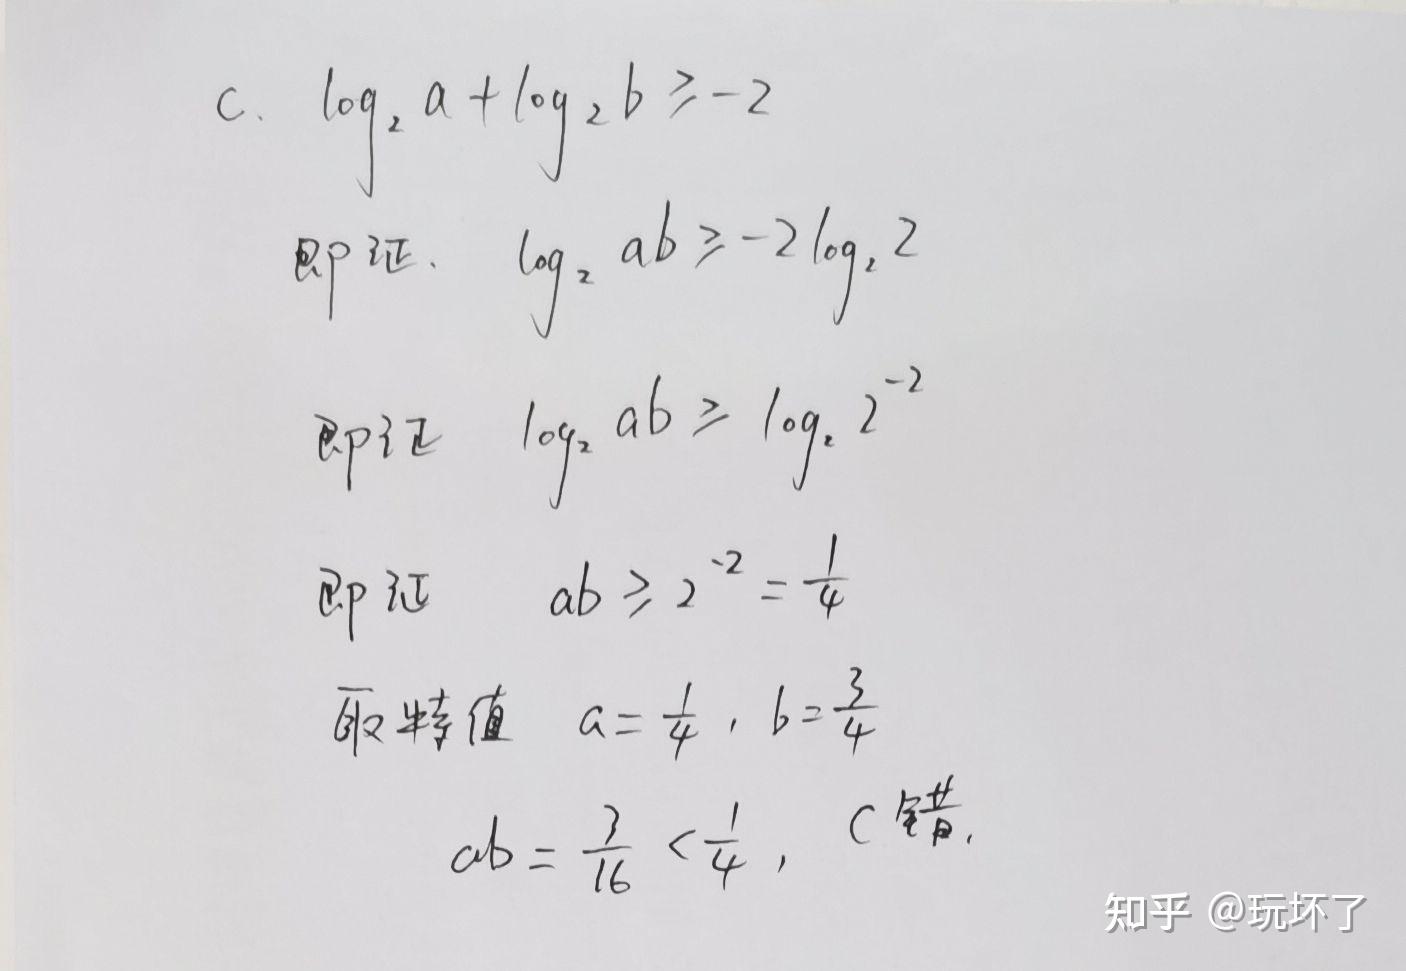 C. log₂ a + log₂ b ≥ -2
即证. log₂ ab ≥ -2 log₂ 2
即证 log₂ ab ≥ log₂ 2⁻²
即证 ab ≥ 2⁻² = 1/4
取特值 a = 1/4 , b = 3/4
ab = 3/16 < 1/4 , C错.
知乎 @玩坏了